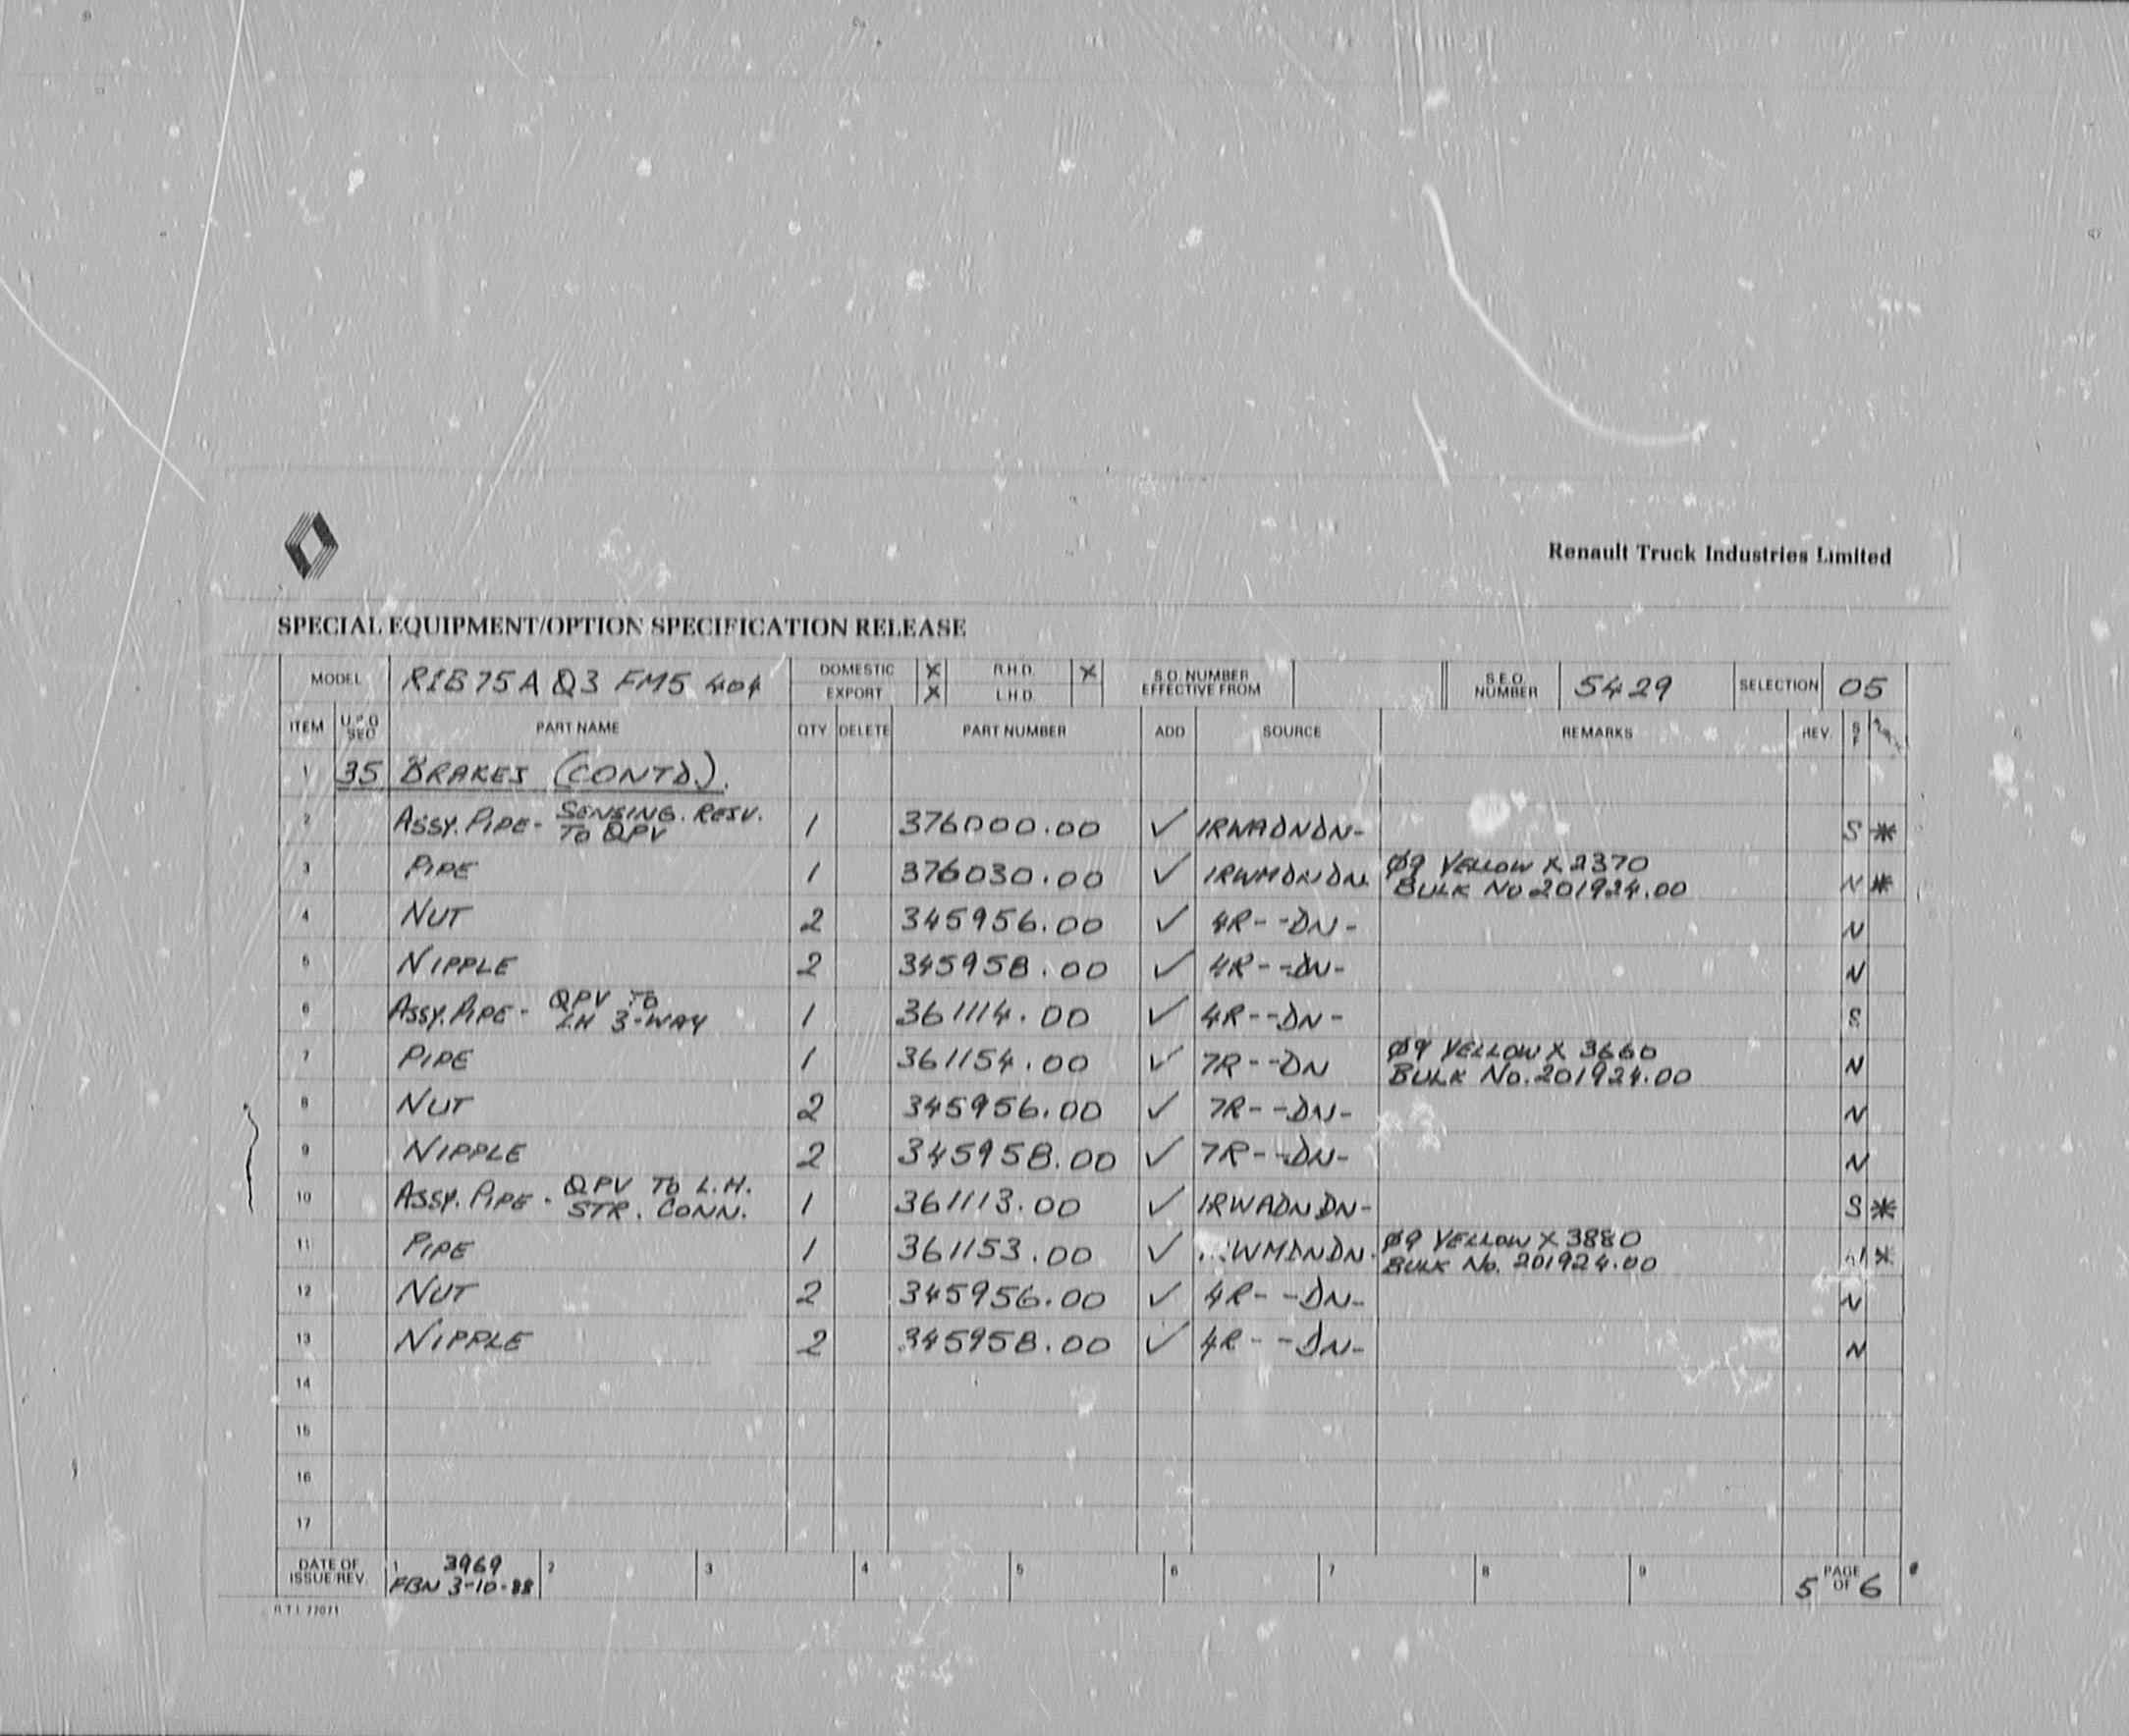 Renault Truck Industries Limited
SPECIAL EQUIPMENT/OPTION SPECIFICATION RELEASE
MODEL RIB75A Q3 FM5 404 DOMESTIC X R.H.D. X S.O. NUMBER EFFECTIVE FROM S.E.O. NUMBER 5429 SELECTION 05
EXPORT X L.H.D.
ITEM U.P.G SEQ PART NAME QTY DELETE PART NUMBER ADD SOURCE REMARKS REV. S F
1 35 BRAKES (CONTD.).
2 ASSY. PIPE - SENSING. RESV. TO QPV 1 376000.00 ✓ 1RWADNDN- S *
3 PIPE 1 376030.00 ✓ 1RWMDNDN Ø9 YELLOW X 2370 N *
BULK NO 201924.00
4 NUT 2 345956.00 ✓ 4R--DN- N
5 NIPPLE 2 345958.00 ✓ 4R--DN- N
6 ASSY. PIPE - QPV TO LH 3-WAY 1 361114.00 ✓ 4R--DN- S
7 PIPE 1 361154.00 ✓ 7R--DN Ø9 YELLOW X 3660 N
BULK NO. 201924.00
8 NUT 2 345956.00 ✓ 7R--DN- N
9 NIPPLE 2 345958.00 ✓ 7R--DN- N
10 ASSY. PIPE - QPV TO L.H. STR. CONN. 1 361113.00 ✓ 1RWADNDN- S *
11 PIPE 1 361153.00 ✓ WMDNDN. Ø9 YELLOW X 3880 *
BULK NO. 201924.00
12 NUT 2 345956.00 ✓ 4R--DN- N
13 NIPPLE 2 345958.00 ✓ 4R--DN- N
14
15
16
17
DATE OF ISSUE/REV. 1 3969 2 3 4 5 6 7 8 9 PAGE 5 OF 6
FBN 3-10-88
R.T.I. 77071